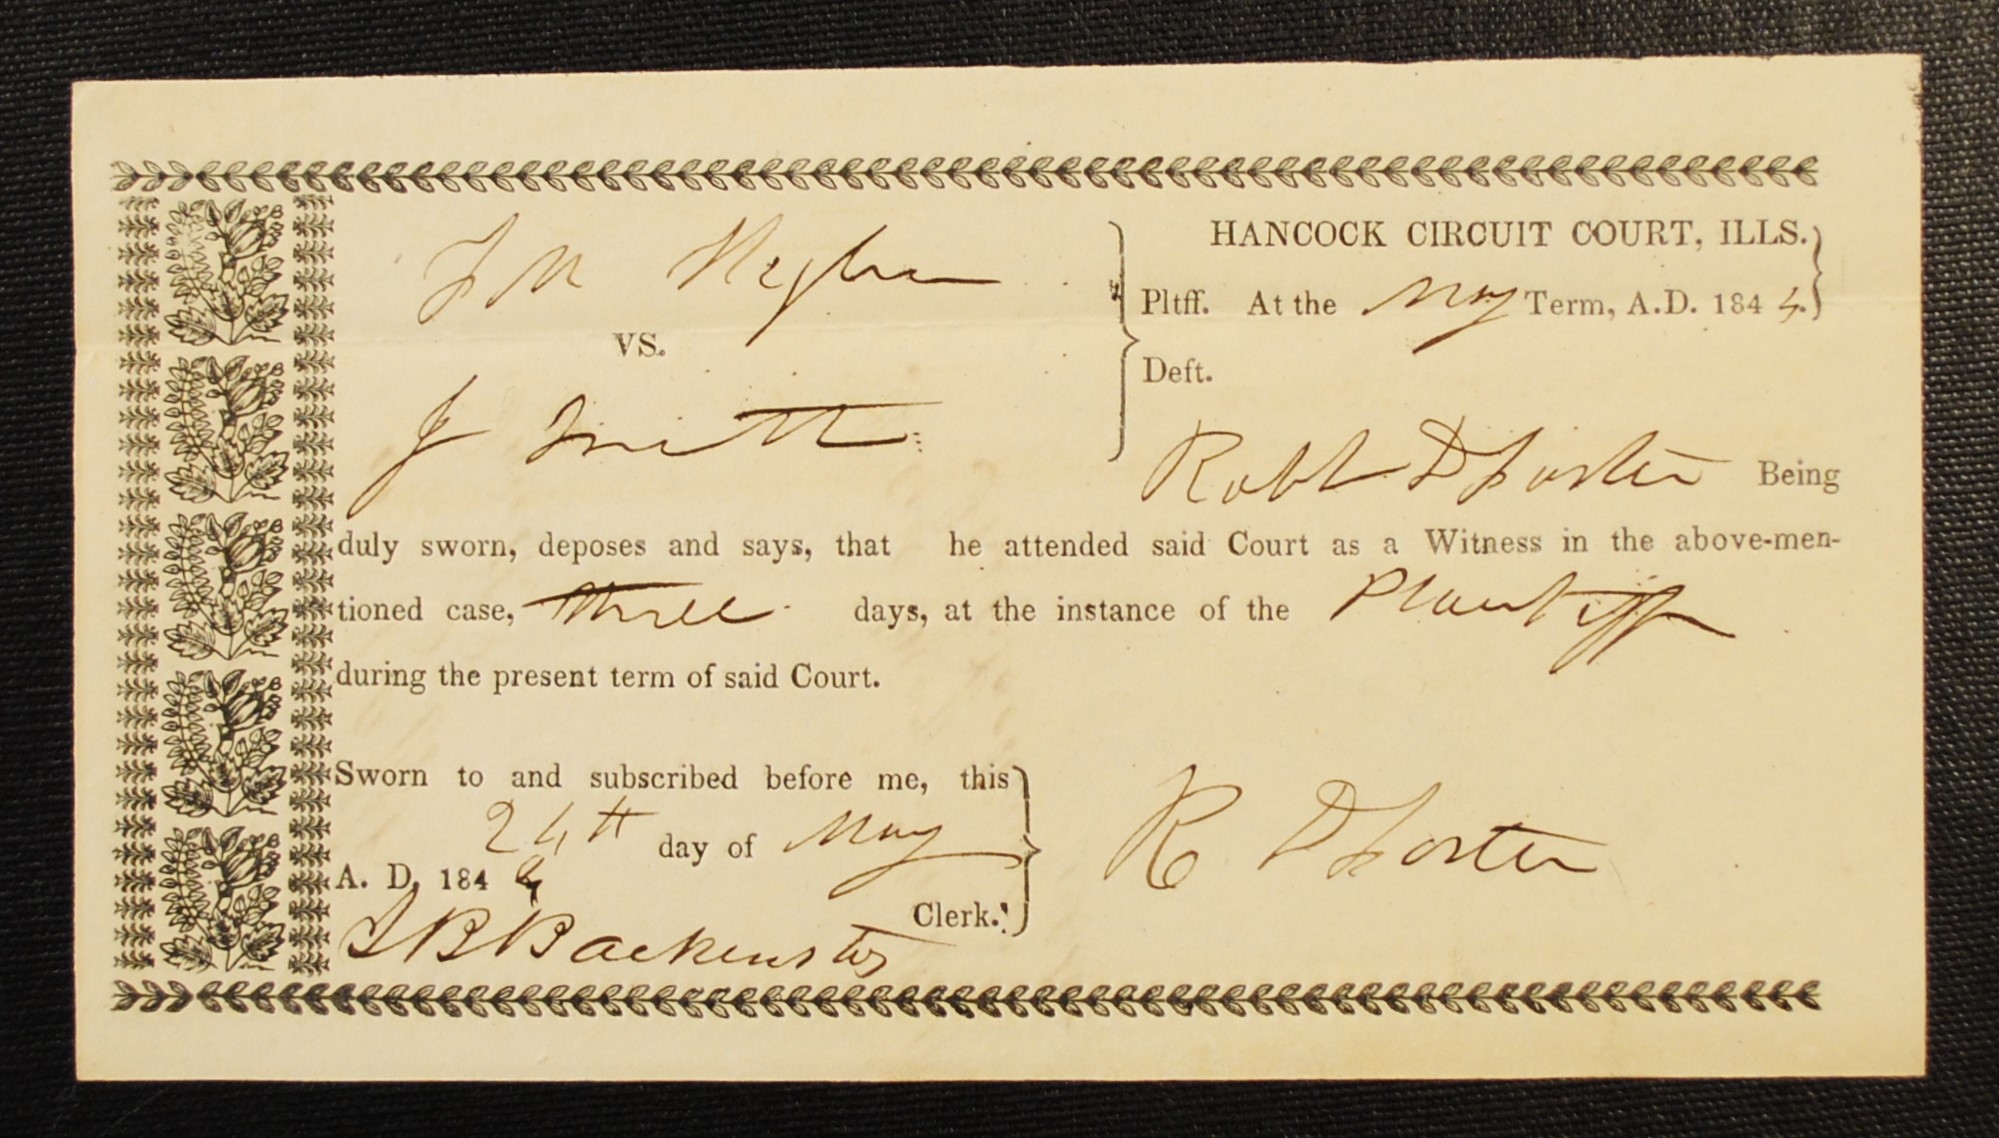 F M Higbee
HANCOCK CIRCUIT COURT, ILLS.
Pltff. At the May Term, A.D. 1844.
VS.
Deft.
J Smith
Robt D Foster Being
duly sworn, deposes and says, that he attended said Court as a Witness in the above-men-
tioned case, three days, at the instance of the Plantiff
during the present term of said Court.
Sworn to and subscribed before me, this
24th day of May
A. D. 1844
R D Foster
Clerk.
J B Backenstos